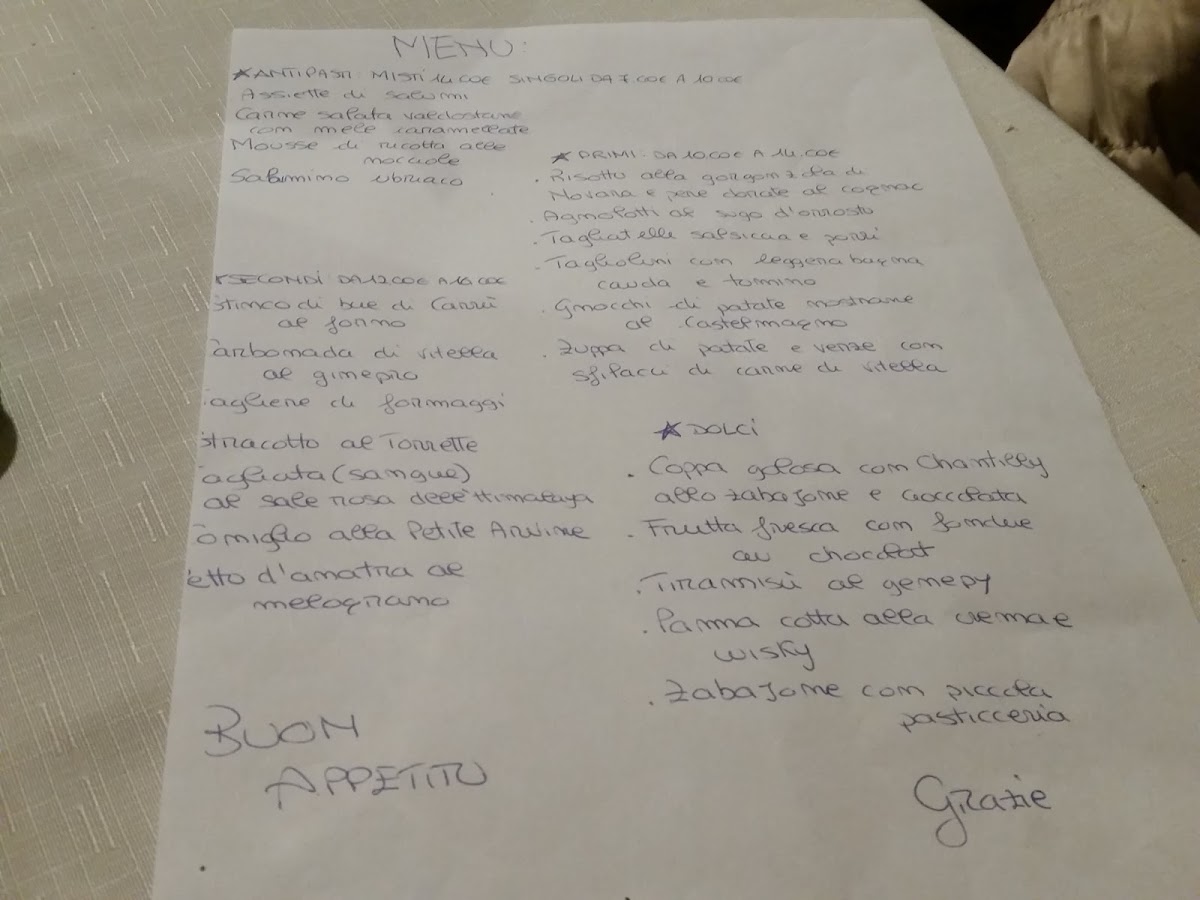 MENU:
★ ANTIPASTI: MISTI 14.00€ SINGOLI DA 7.00€ A 10.00€
Assiette di salumi
Carne salata valdostana
con mele caramellate
Mousse di ricotta alle
nocciole
Salamino ubriaco
★ PRIMI: DA 10.00€ A 14.00€
. Risotto alla gorgonzola di
Novara e pere dorate al cognac
. Agnolotti al sugo d'arrosto
. Tagliatelle salsiccia e porri
. Tagliolini con leggera bagna
cauda e tomino
. Gnocchi di patate nostrane
al Castelmagno
. Zuppa di patate e verze con
sfilacci di carne di vitella
★ SECONDI DA 12.00€ A 16.00€
Stinco di bue di Carrù
al forno
arbonada di vitella
al ginepro
agliere di formaggi
Stracotto al Torrette
agliata (sangue)
al sale rosa dell'Himalaya
oniglio alla Petite Arvine
etto d'anatra al
melograno
★ DOLCI
. Coppa golosa con Chantilly
allo zabajone e cioccolata
. Frutta fresca con fondue
au chocolat
. Tiramisù al genepy
. Panna cotta alla crema e
wisky
. Zabajone con piccola
pasticceria
BUON
APPETITO
Grazie